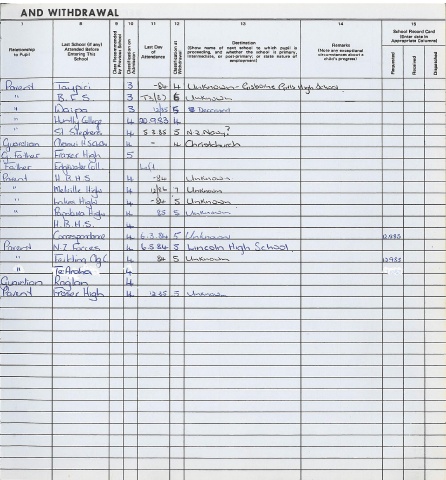 AND WITHDRAWAL
7 8 9 10 11 12 13 14 15
Relationship to Pupil
Last School (if any) Attended Before Entering This School
Class Recommended by Previous School
Classification on Admission
Last Day of Attendance
Classification at Withdrawal
Destination (Show name of next school to which pupil is proceeding, and whether the school is post-primary, intermediate, or post-primary, or state nature of employment)
Remarks (Note any exceptional circumstances about a child's progress)
School Record Card (Enter date in Appropriate Columns)
Requested Received Dispatched
Parent 3 -84 4 Unknown - Gisborne Girls High School
" 3 6 Unknown
" Waipa 3 5 Deceased
" Huntly College 4 20.9.83 4
" St Stephens 4 5.8.85 5 N.Z Navy?
Guardian 4 - 4 Christchurch
G. Father Fraser High 5
Father Left
Parent H.B.H.S. 4 -84 Unknown
" Melville High 4 7 Unknown
" High 4 -84 5 Unknown
" High 4 85 5 Unknown
H.B.H.S. 4
Correspondence 4 6.3.84 5 Unknown
Parent N.Z Forces 4 6.5.84 5 Lincoln High School
" Feilding Ag C 4 84 5 Unknown
" Te Aroha 4
Guardian Raglan 4
Parent Fraser High 4 12.85 5 Unknown